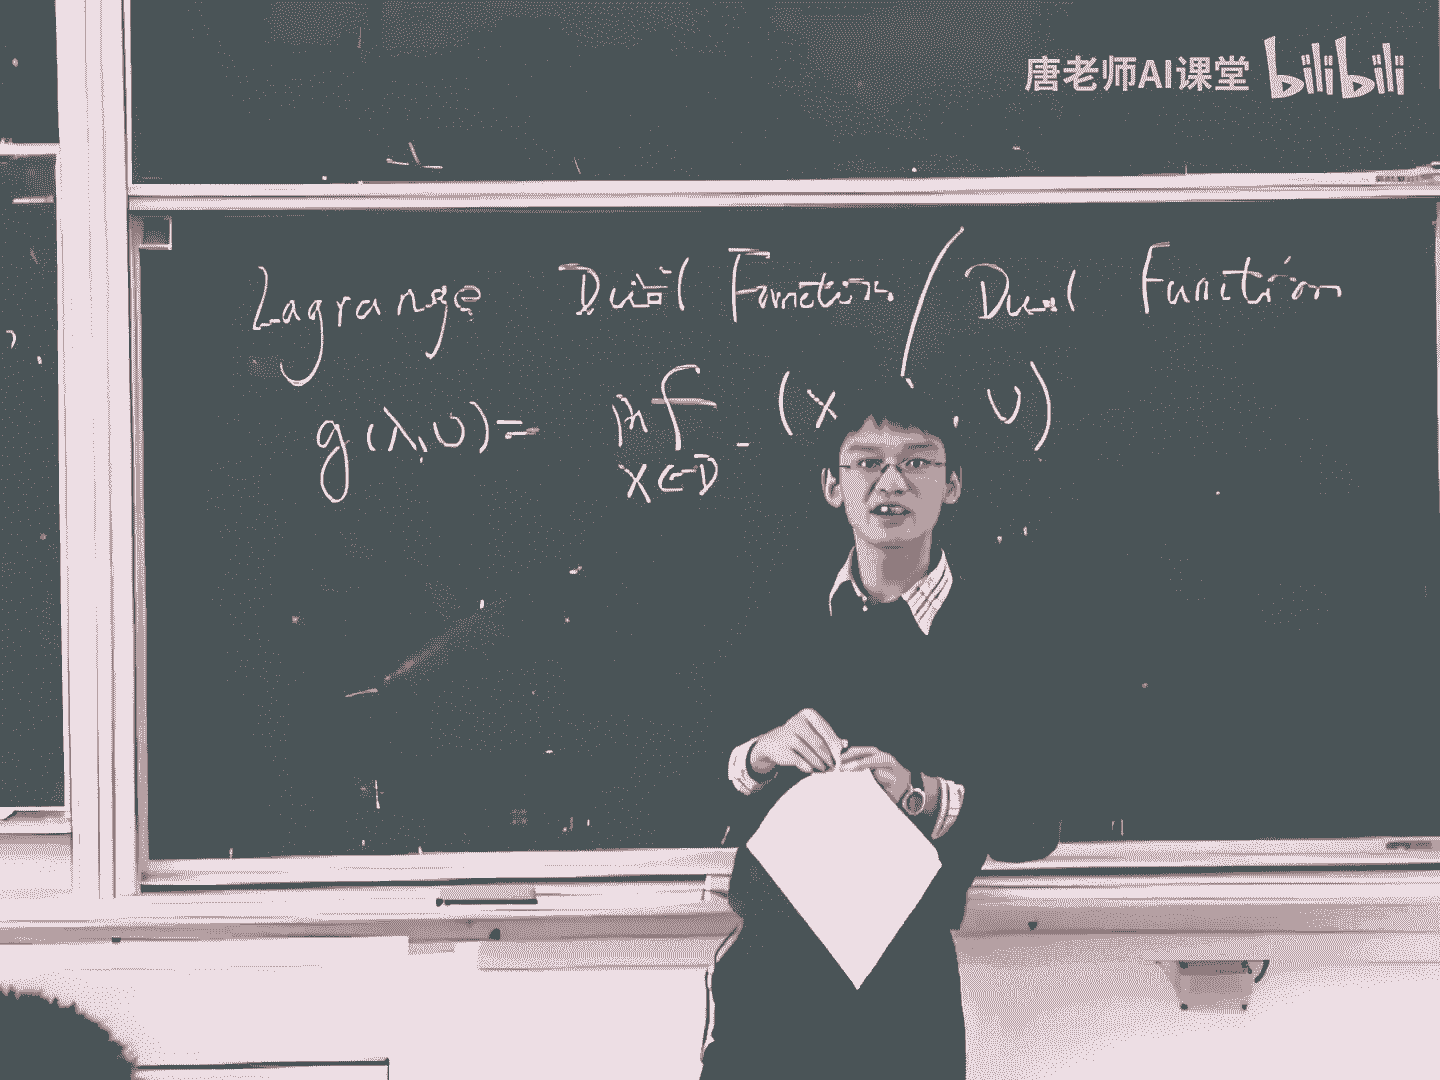 唐老师AI课堂 bilibili
Lagrange Dual Function / Dual Function
g(λ,υ)= inf (x , υ)
x∈D